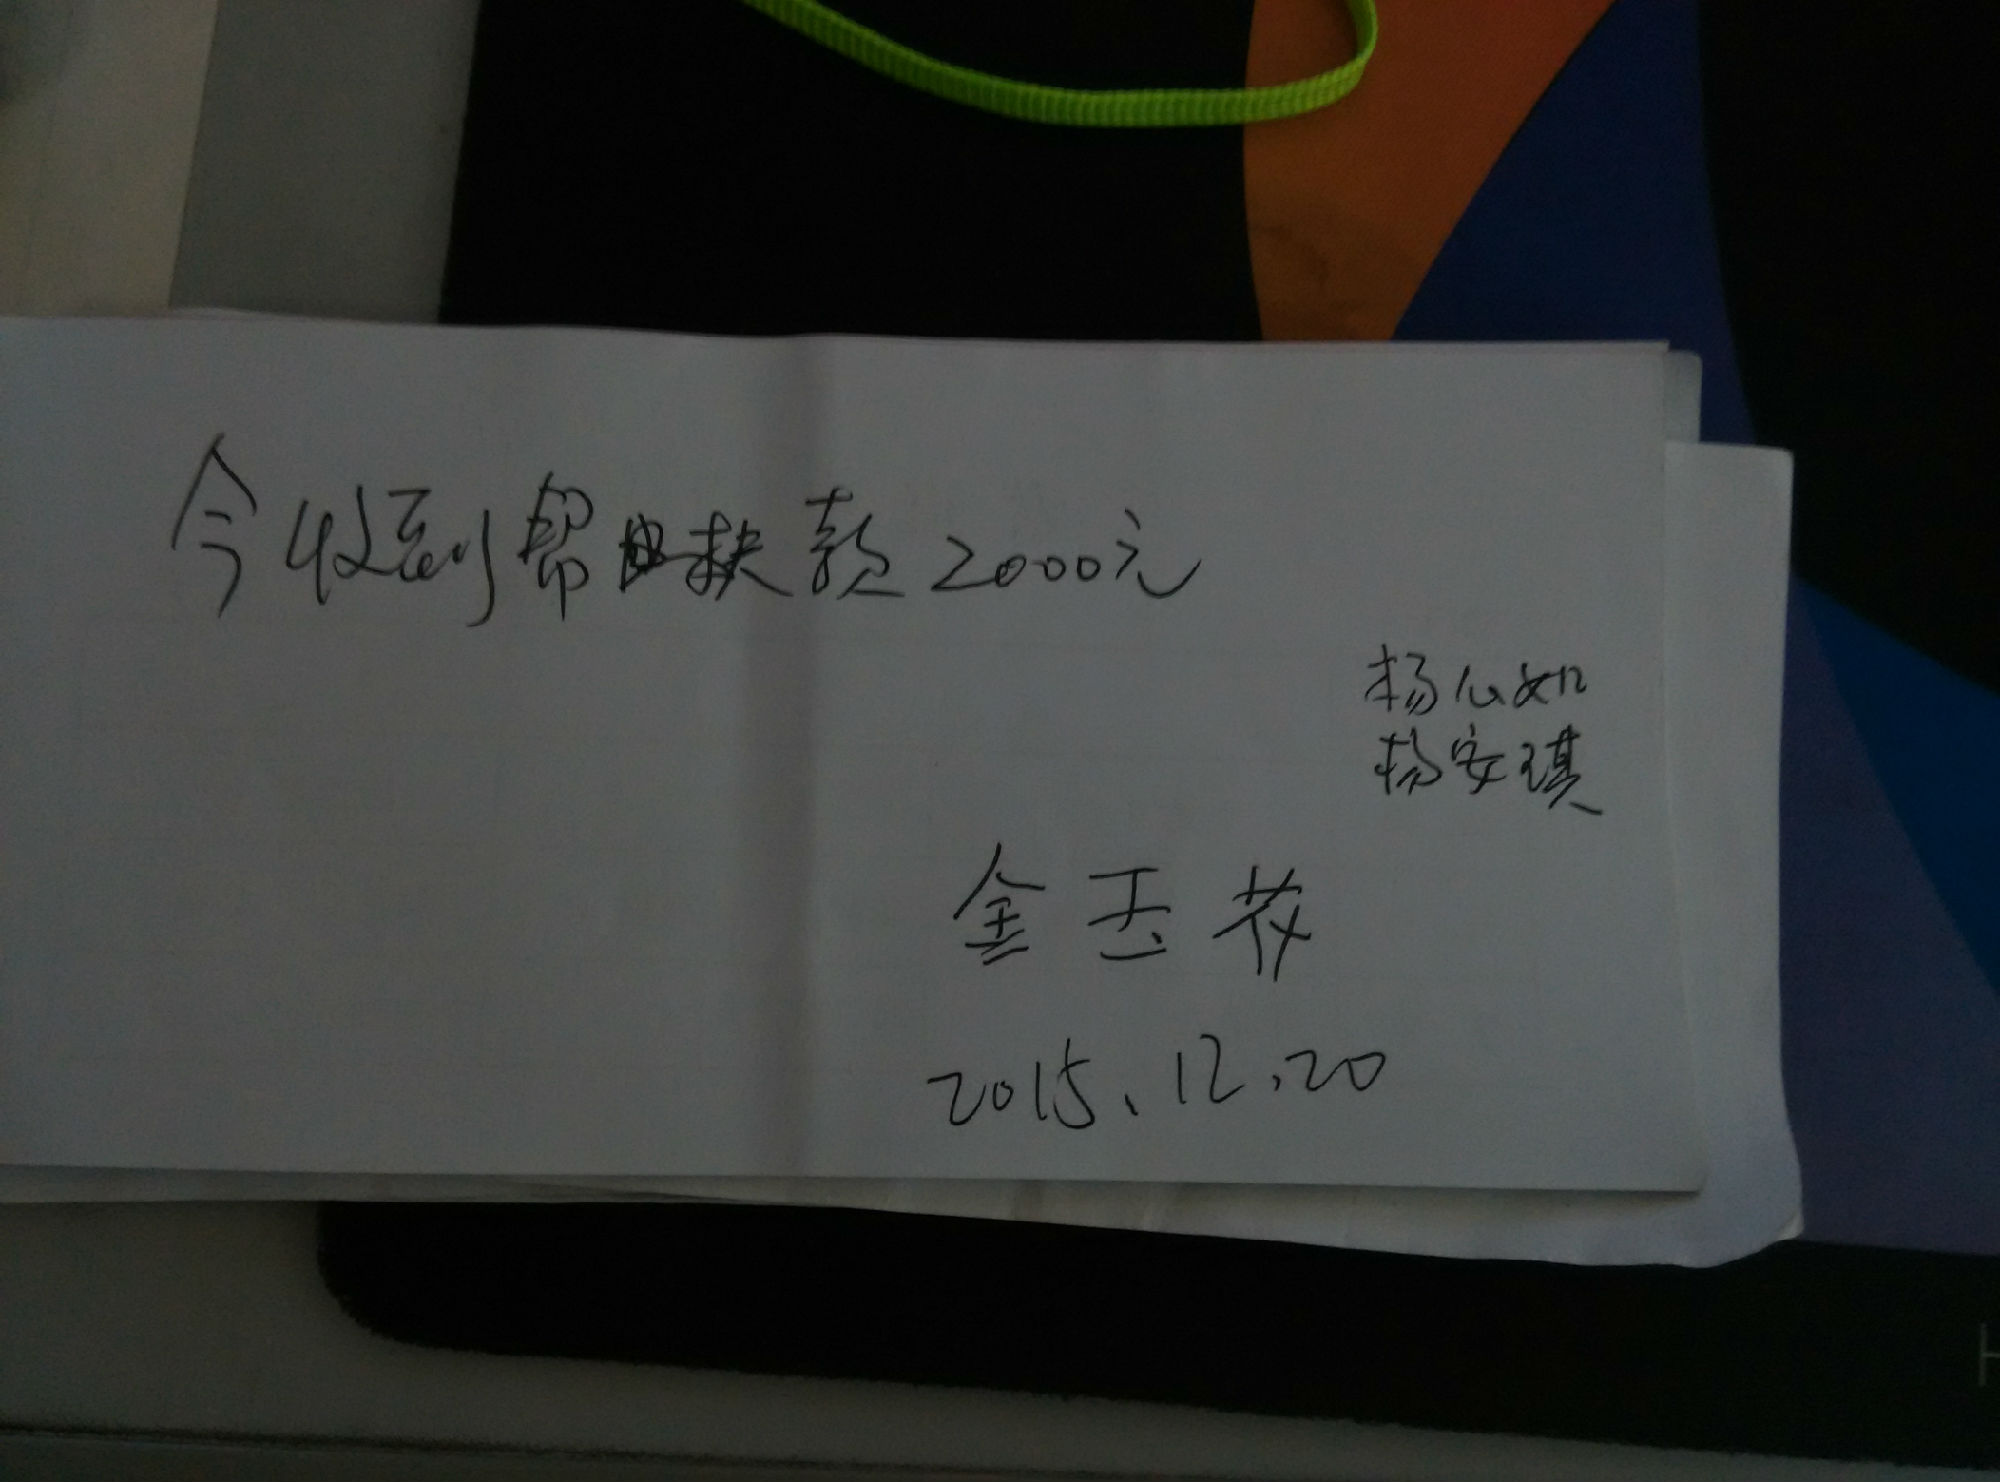 今收到帮扶款2000元
杨心如
杨安琪
金玉花
2015.12.20
H